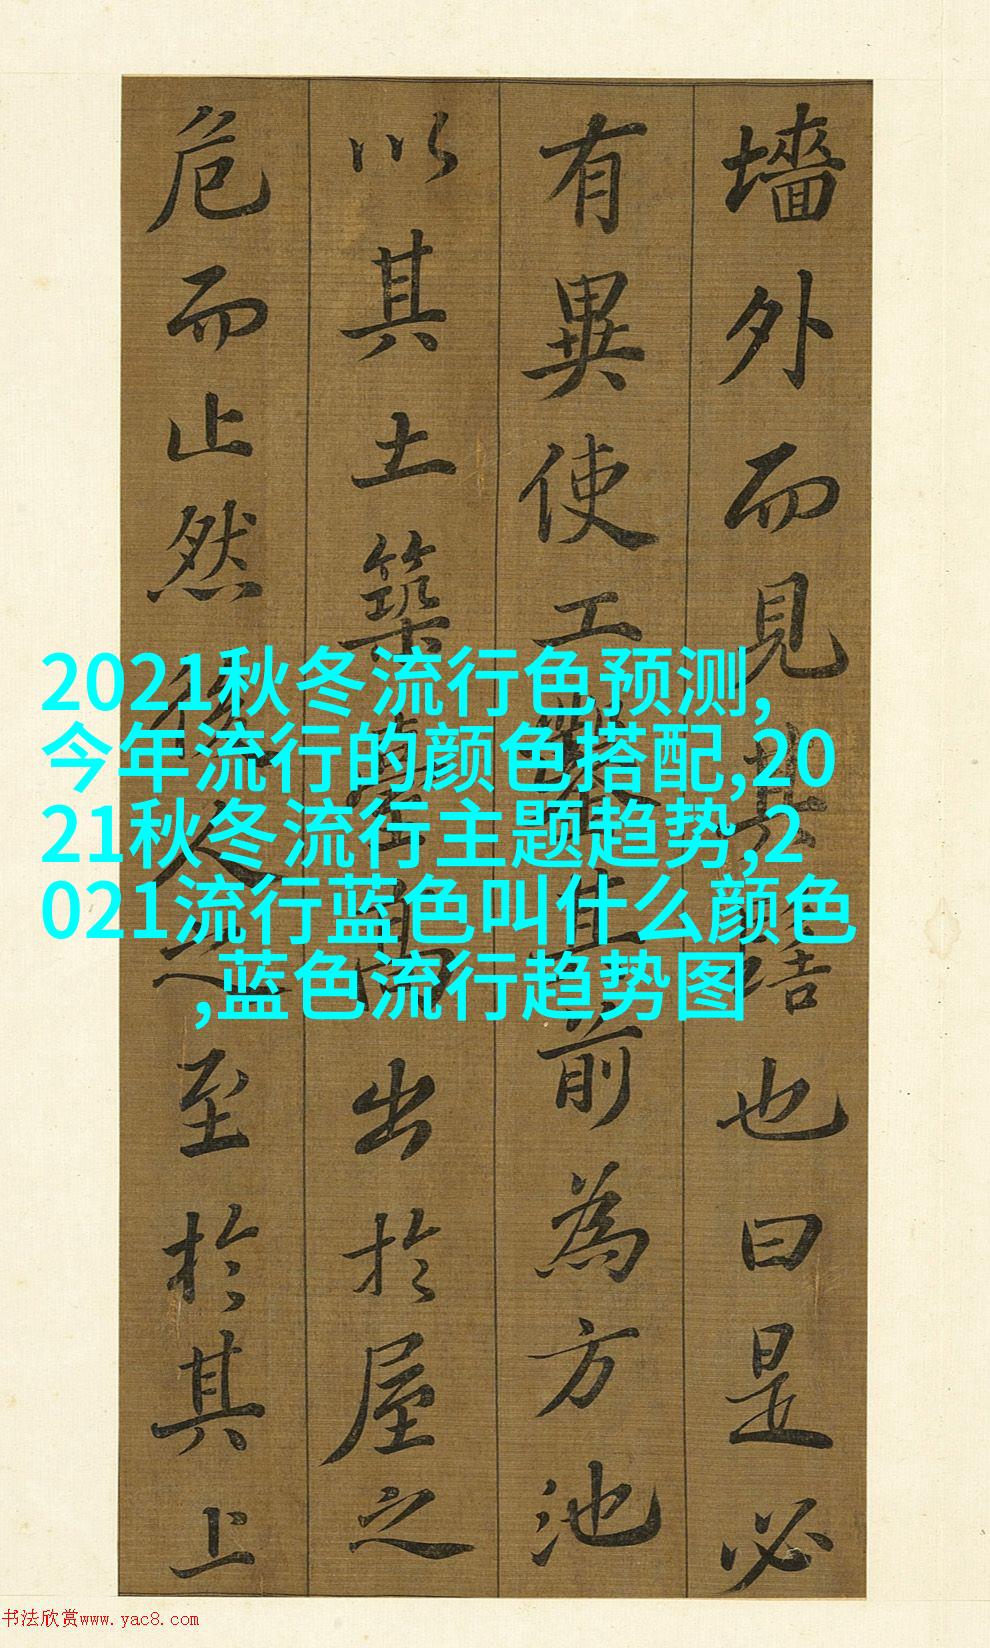 墻外而見其髻也曰是必
有異使工鑿其前為方池
以其土築臺高出於屋之
危而止然後人之至於其上
2021秋冬流行色预测,
今年流行的颜色搭配,20
21秋冬流行主题趋势,2
021流行蓝色叫什么颜色
,蓝色流行趋势图
书法欣赏www.yac8.com